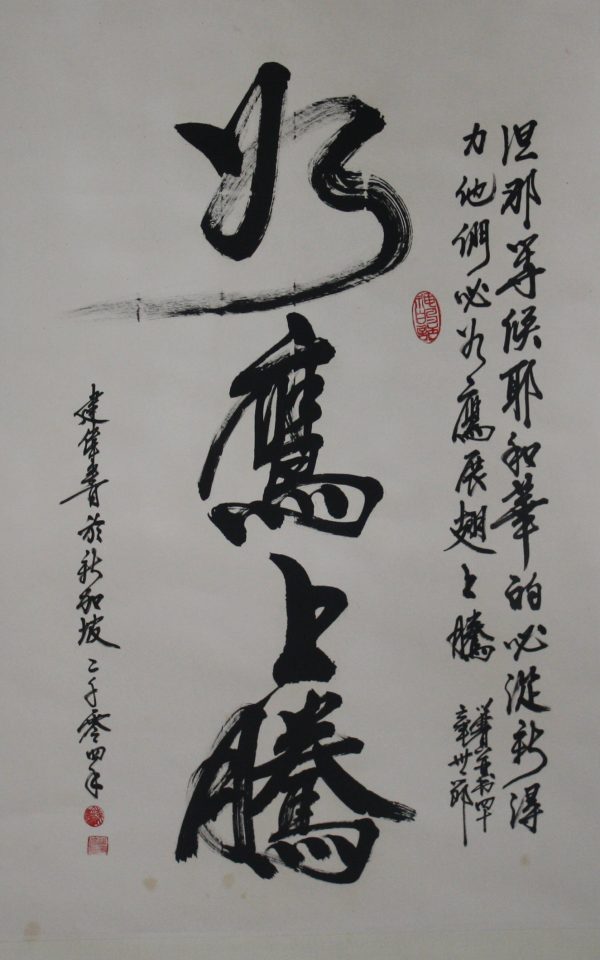 但那等候耶和華的必從新得
力他們必如鷹展翅上騰
賽亞書四十
章卅一節
如鷹上騰
建偉書於新加坡二千零四年